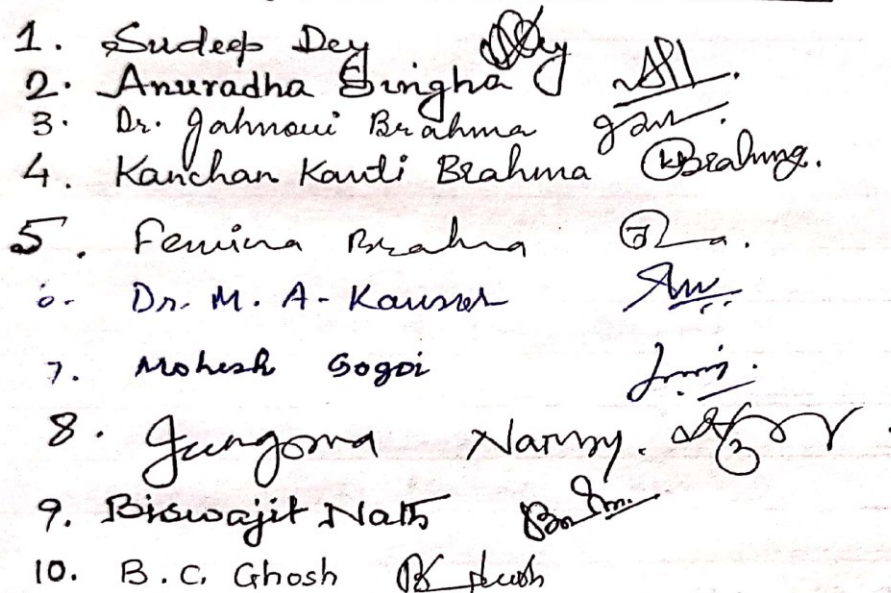 1. Sudeep Dey
2. Anuradha Singha
3. Dr. Jahnovi Brahma
4. Kanchan Kanti Brahma KBrahma.
5. Femina Brahma
6. Dr. M. A. Kausser
7. Mohesh Gogoi
8. Jungoma Narzy.
9. Biswajit Nath
10. B.C. Ghosh